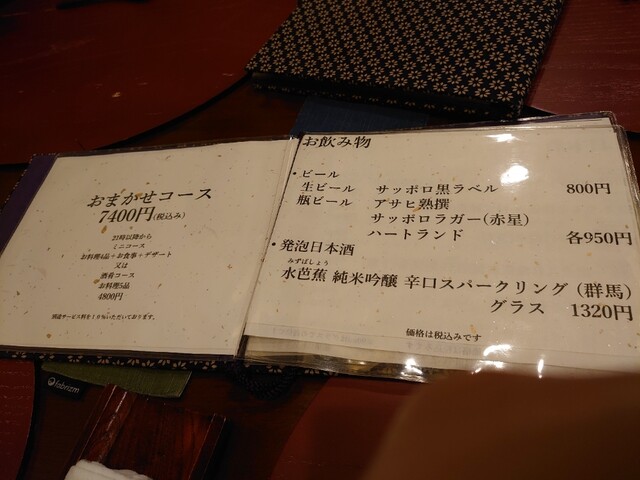 おまかせコース
7400円(税込み)
21時以降から
ミニコース
お料理4品+お食事+デザート
又は
酒肴コース
お料理5品
4800円
別途サービス料を10%いただいております。
お飲み物
・ビール
生ビール サッポロ黒ラベル 800円
瓶ビール アサヒ熟撰
サッポロラガー(赤星)
ハートランド 各950円
・発泡日本酒
みずばしょう
水芭蕉 純米吟醸 辛口スパークリング (群馬)
グラス 1320円
価格は税込みです
fabrizm